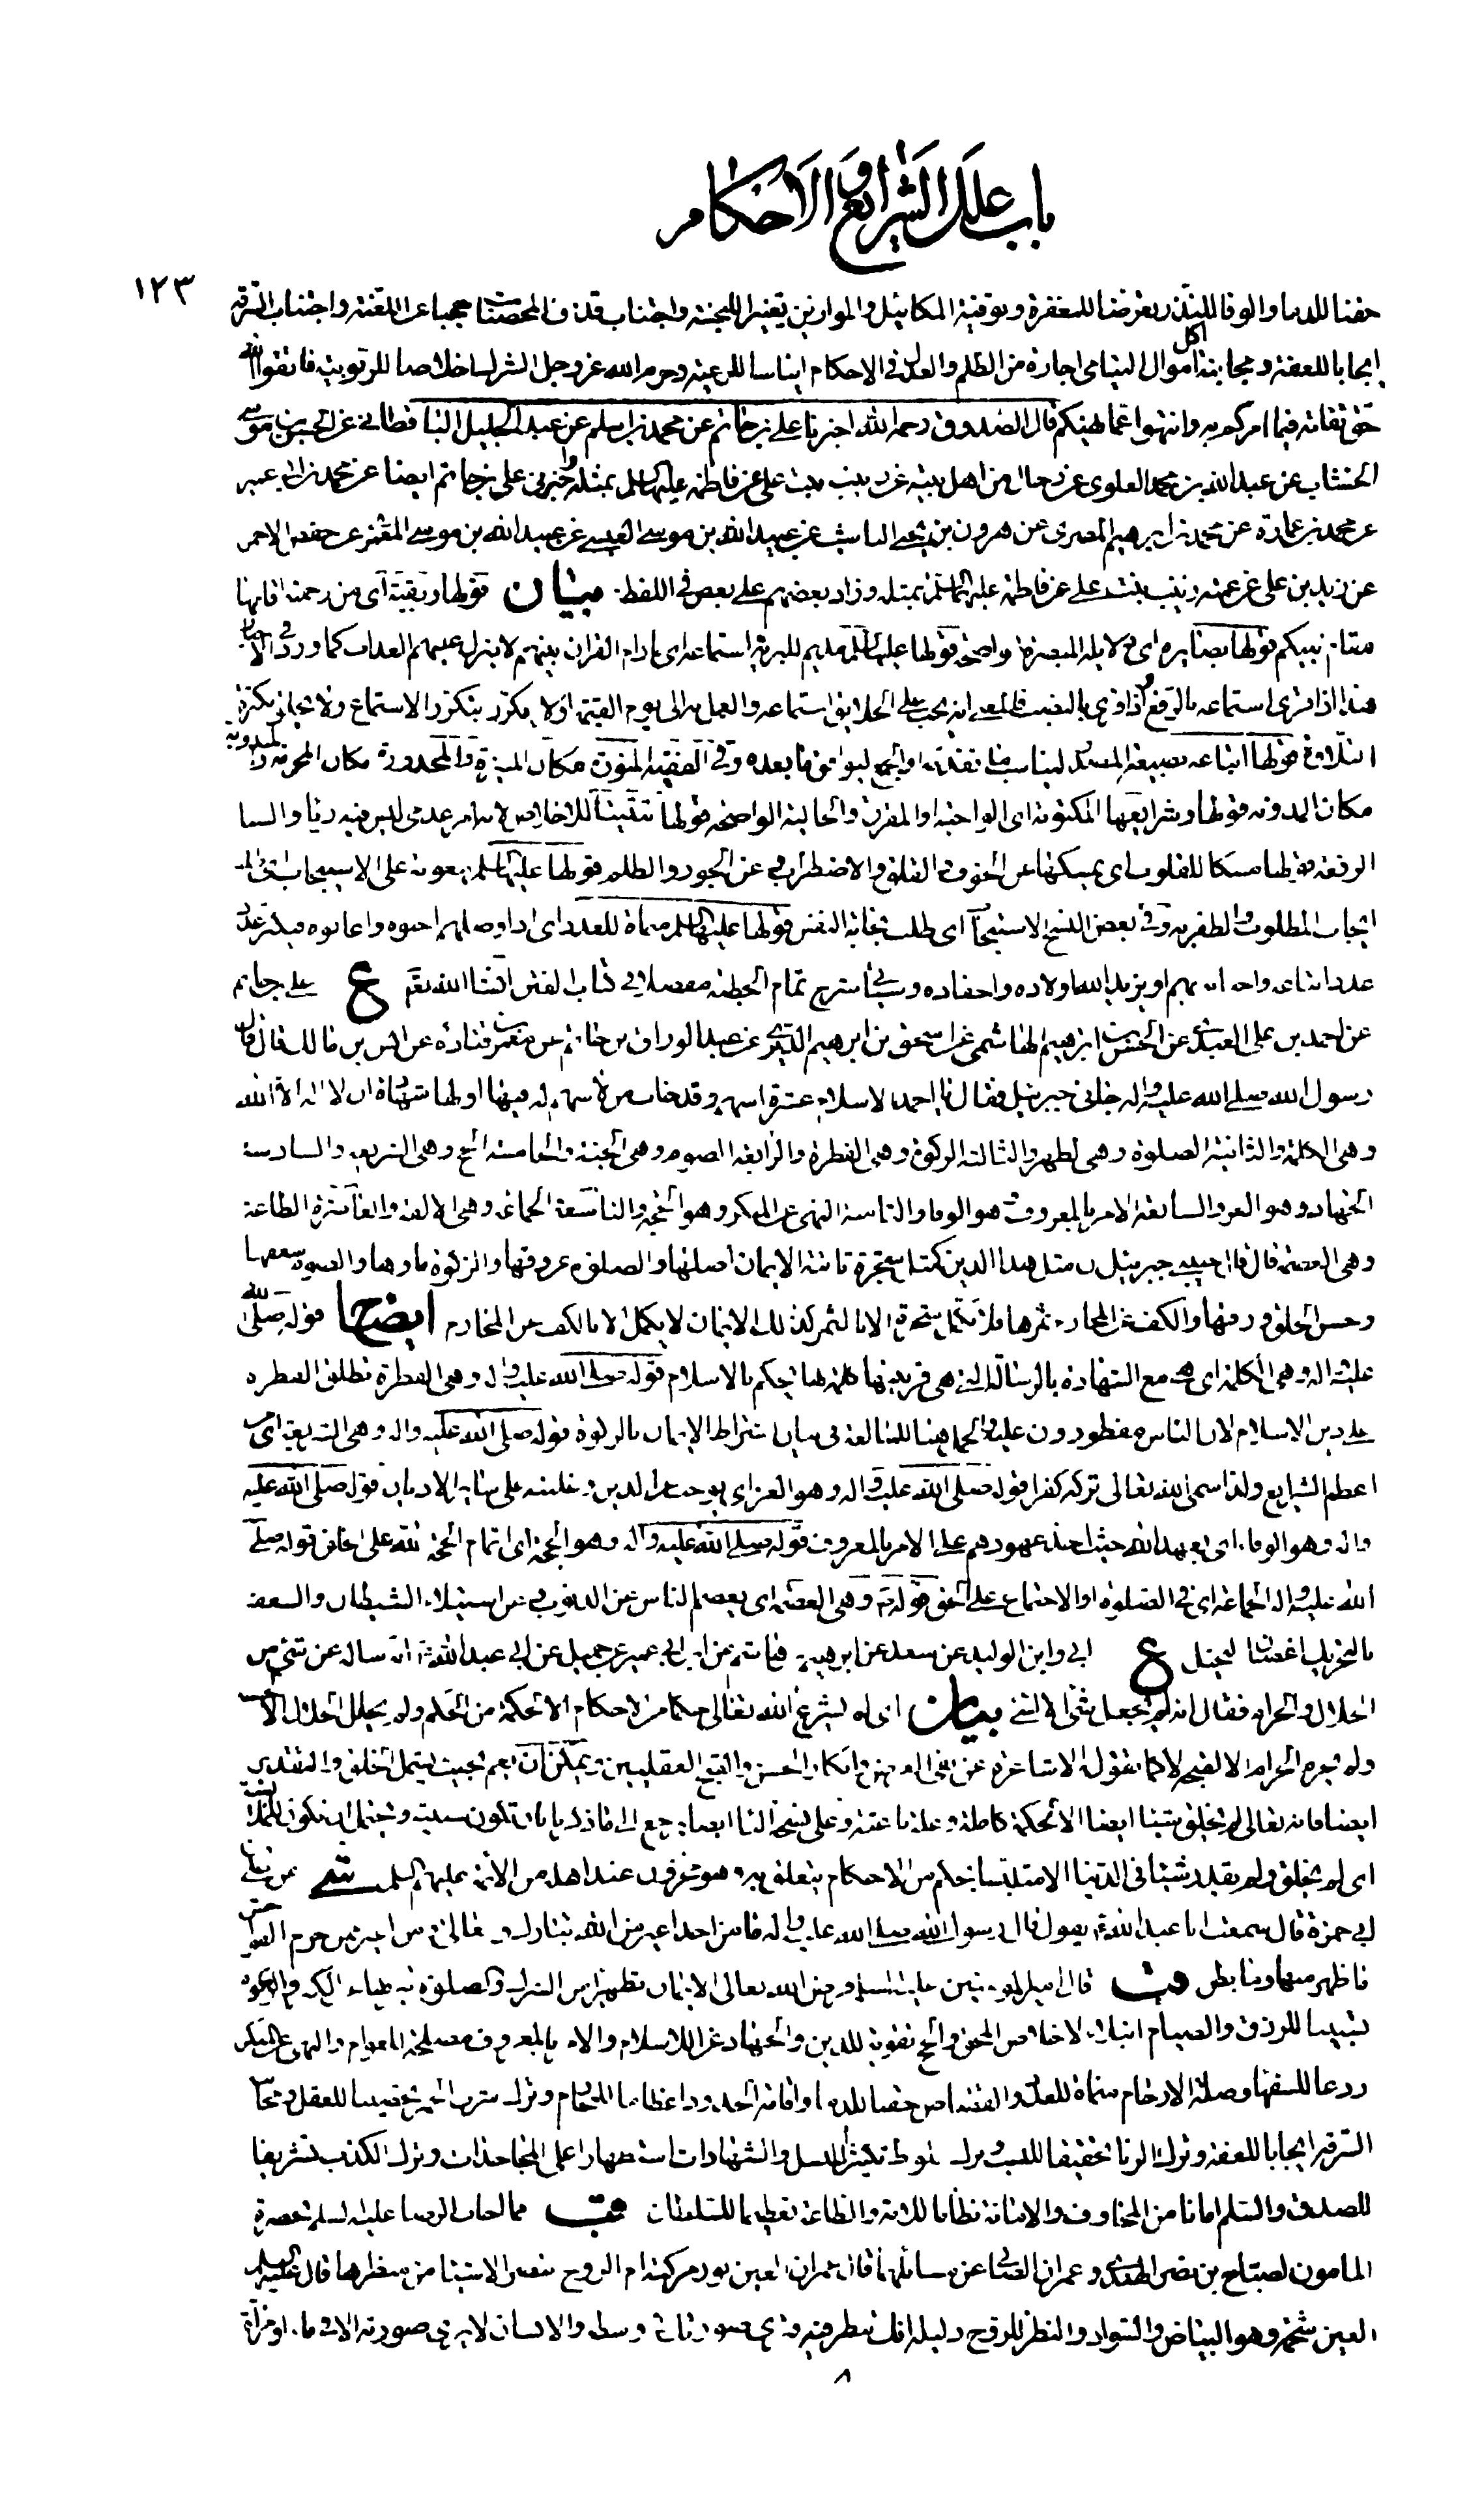 باب علل الشرايع والاحكام
١٢٣
حقنا للدماء والوفا للنذر تعرضا للمغفرة وتوفية المكائيل والموازين تغييرا للبخسة واجتناب قذف المحصنات حجبا عن اللعنة واجتناب السرقة
ايجابا للعفة ومجانبة اكل اموال اليتامى اجارة من الظلم والعدل في الاحكام ايناسا للرعية وحرم الله عز وجل الشرك اخلاصا للربوبية فاتقوا الله
حق تقاته فيما امركم به وانتهوا عما نهيكم قال الصدوق رحمه الله اخبرنا علي بن حاتم عن محمد بن اسلم عن عبد الجليل الباقطاني عن الحسن بن موسى
الخشاب عن عبد الله بن محمد العلوي عن رجال من اهل بيته عن زينب بنت علي عن فاطمة عليها السلام بمثله واخبرني علي بن حاتم ايضا عن محمد بن ابي عمير
عن محمد بن عمارة عن محمد بن ابرهيم المصري عن هرون بن يحيى الناشب عن عبيد الله بن موسى العبسي عن عبيد الله بن موسى المعمري عن حفص الاحمر
عن زيد بن علي عن عمته زينب بنت علي عن فاطمة عليها السلام بمثله وزاد بعضهم على بعض في اللفظ بيان قولها وبقية اى من رحمته اقامها
مقام نبيكم قولها بصائره اى دلايله المبصرة الواضحة قولها عليها السلام مديم للبرية استماعه اى مادام القران بينهم لا ينزل عليهم العذاب كما ورد في الاخبار
هذا اذا قرئ استماعه بالرفع واذا قرئ بالنصب فالمعنى انه يجب على الخلايق استماعه والعمل به الى يوم القيمة او لا يكرر بتكرر الاستماع ولا يخلق بكثرة
التلاوة قولها اتباعه بصيغة المصدر ليناسب ما تقدمه او الجمع ليوافق ما بعده وفي الفقيه المنورة مكان المنيرة والمحدودة مكان المحرمة والمندوبة
مكان المدونة قولها وشرايعها المكتوبة اى الواجبة او المقررة والجالية الواضحة قولها تثبيتا للاخلاص لانه امر عدمي ليس فيه رياء والسنا
الرفعة قولها مسكا للقلوب اى يمسكها عن الخوف والقلق والاضطراب عن الجور والظلم قولها عليها السلام معونة على الاستيجاب اى طلب
ايجاب المطلوب والظفر به وفي بعض النسخ الاستنجاء اى طلب نجاة النفس قولها عليها السلام منماة للعدد اى اذا وصلهم احبوه واعانوه فيكثر عدد
عدد اتباعه واحبائه بهم او يزيد الله اولاده واحفاده وسيأتي شرح تمام الخطبة مفصلا في كتاب الفتن انشاء الله تعم ع علي بن حاتم
عن احمد بن علي العبدي عن الحسن بن ابرهيم الهاشمي عن اسحق بن ابرهيم الديري عن عبد الرزاق بن حاتم عن معمر بن قتادة عن انس بن مالك قال قال
رسول الله صلى الله عليه واله جاءني جبرئيل فقال يا احمد الاسلام عشرة اسهم وقد خاب من لا سهم له فيها اولها شهادة ان لا اله الا الله
وهي الكلمة والثانية الصلوة وهي الطهر والثالثة الزكوة وهي الفطرة والرابعة الصوم وهي الجنة والخامسة الحج وهي الشريعة والسادسة
الجهاد وهو العز والسابعة الامر بالمعروف وهو الوفاء والثامنة النهي عن المنكر وهو الحجة والتاسعة الجماعة وهي الالفة والعاشرة الطاعة
وهي العصمة قال قال حبيبي جبرئيل ان مثل هذا الدين كمثل شجرة ثابتة الايمان اصلها والصلوة عروقها والزكوة ماؤها والصوم سعفها
وحسن الخلق ورقها والكف عن المحارم ثمرها فلا تكمل شجرة الا بالثمر كذلك الايمان لا يكمل الا بالكف عن المحارم ايضاح قوله صلى الله
عليه واله وهي الكلمة اى هي مع الشهادة بالرسالة التي هي قرينتها كلمة بها يحكم بالاسلام قوله صلى الله عليه واله وهي الفطرة تطلق الفطرة
على دين الاسلام لان الناس مفطورون عليه والحمل هنا للمبالغة في بيان اشتراط الايمان بالزكوة قوله صلى الله عليه واله وهي الشريعة اى من
اعظم الشرايع ولذا سمى الله تعالى تركه كفرا قوله صلى الله عليه واله وهو العز اى يوجب عز الدين وغلبته على سائر الاديان قوله صلى الله عليه
واله وهو الوفاء اى بعهد الله حيث اخذ عهودهم على الامر بالمعروف قوله صلى الله عليه واله وهو الحجة اى اتمام الحجة لله على خلقه قوله صلى
الله عليه واله الجماعة اى في الصلوة او الاجتماع على الحق قوله ص وهي العصمة اى يعصم الناس عن الذنوب وعن استيلاء الشيطان والسعف
بالتحريك اغصان النخيل ع ابي وابن الوليد عن سعد عن ابرهيم بن هاشم عن ابن ابي عمير عن جميل عن ابي عبد الله ع انه ساله عن شيء من
الحلال والحرام فقال انه لم يجعل شيء الا لشيء بيان اى لم يشرع الله تعالى حكما من الاحكام الا لحكمة من الحكم ولم يحلل الحلال الا لحسنه
ولم يحرم الحرام الا لقبحه لا كما تقوله الاشاعرة من نفي الغرض وانكار الحسن والقبح العقليين ويمكن ان يعم بحيث يشمل الخلق والتقدير
ايضا فانه تعالى لم يخلق شيئا ايضا الا لحكمة كاملة وعلة باعثة وعلى نسخة الباء ايضا يرجع الى ما ذكرنا بان تكون سببية ويحتمل ان تكون للملابسة
اى لم يخلق ولم يقدر شيئا في الدنيا الا متلبسا بحكم من الاحكام يتعلق به وهو مخزون عند اهله من الائمة عليهم السلم شى عن
ابي حمزة قال سمعت ابا عبد الله ع يقول قال رسول الله صلى الله عليه واله ما من احد اغير من الله تبارك وتعالى ومن اغير ممن حرم الفواحش
ما ظهر منها وما بطن قال امير المؤمنين عليه السلم فرض الله تعالى الايمان تطهيرا من الشرك والصلوة تنزيها عن الكبر والزكوة
تسبيبا للرزق والصيام ابتلاء لاخلاص المحق والحج تقوية للدين والجهاد عزا للاسلام والامر بالمعروف مصلحة للعوام والنهي عن المنكر
ردعا للسفهاء وصلة الارحام منماة للعدد والقصاص حقنا للدماء واقامة الحدود اعظاما للمحارم وترك شرب الخمر تحصينا للعقل ومجانبة
السرقة ايجابا للعفة وترك الزنا تحقيقا للنسب وترك اللواط تكثيرا للنسل والشهادات استظهارا على المجاحدات وترك الكذب تشريفا
للصدق والسلم امانا من المخاوف والامانة نظاما للامة والطاعة تعظيما للسلطان مما اجاب الرضا عليه السلم بحضرة
المامون لصباح بن نصر الهندي وعمران الصابي عن مسائلهما قال عمران العين نور مركبة ام الروح تبصر الاشياء من منظرها قال عليه السلم
العين شحمة وهو البياض والسواد والنظر للروح دليله انك تنظر فيه فترى صورتك في وسطه والانسان لا يرى صورته الا في ماء او مرآة
٨